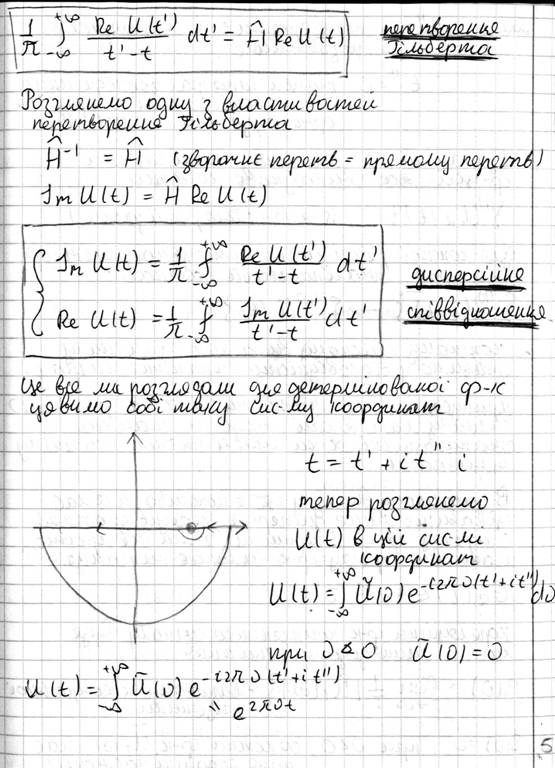 1/π ∫_{-∞}^{+∞} Re U(t')/(t'-t) dt' = Ĥ Re U(t)
перетворення
Гільберта
Розглянемо одну з властивостей
перетворення Гільберта
Ĥ⁻¹ = Ĥ (зворотнє перетв = прямому перетв)
Im U(t) = Ĥ Re U(t)
Im U(t) = 1/π ∫_{-∞}^{+∞} Re U(t')/(t'-t) dt'
Re U(t) = 1/π ∫_{-∞}^{+∞} Im U(t')/(t'-t) dt'
дисперсійне
співвідношення
Це все ми розглядали для детермінованої ф-к
уявимо собі таку сис-му координат
t = t' + i t" i
тепер розглянемо
U(t) в цій сис-мі
координат
U(t) = ∫_{-∞}^{+∞} Ũ(ν) e^{-i2πν(t'+it")} dν
при ν < 0 Ũ(ν) = 0
U(t) = ∫_{-∞}^{+∞} Ũ(ν) e^{-i2πν(t'+it")}
" e^{2πνt}
5